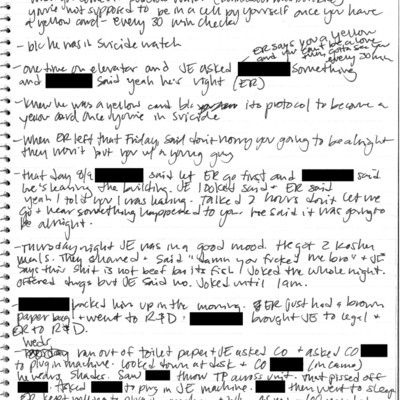 you're not supposed to be in a cell by yourself once you have
a yellow card - every 30 min check
- b/c he was in suicide watch
ER says you a yellow
and you can't be alone
gotta see you
every 30 min
- one time on elevator and JE asked something
and said yeah he's right (ER)
- Knew he was a yellow card b/c its protocol to become a
yellow card once you're in suicide
- When ER left that Friday, said don't worry you going to be alright
they won't put you w/ a young guy
- that day 8/9 said let ER go first and said
he's leaving the building. JE looked sad & ER said
yeah I told you I was leaving. Talked 2 hours don't let me
go & hear something happened to you. He said it was going to
be alright.
- Thursday night JE was in a good mood. He got 2 kosher
meals. They shared & said "damn you fucked me bro" & JE
says this shit is not beef b/c its fish. Joked the whole night.
offered drugs but JE said no. Joked until 1am.
- packed him up in the morning. ER just had a brown
paper bag & went to R & D. brought JE to legal &
ER to R & D.
- Weds
ran out of toilet paper & JE asked CO & asked CO
to plug in machine. Looked down at desk & CO (in came)
he wears shades. Saw throw TP across unit. that pissed off
asked to plug in JE machine. then went to sleep